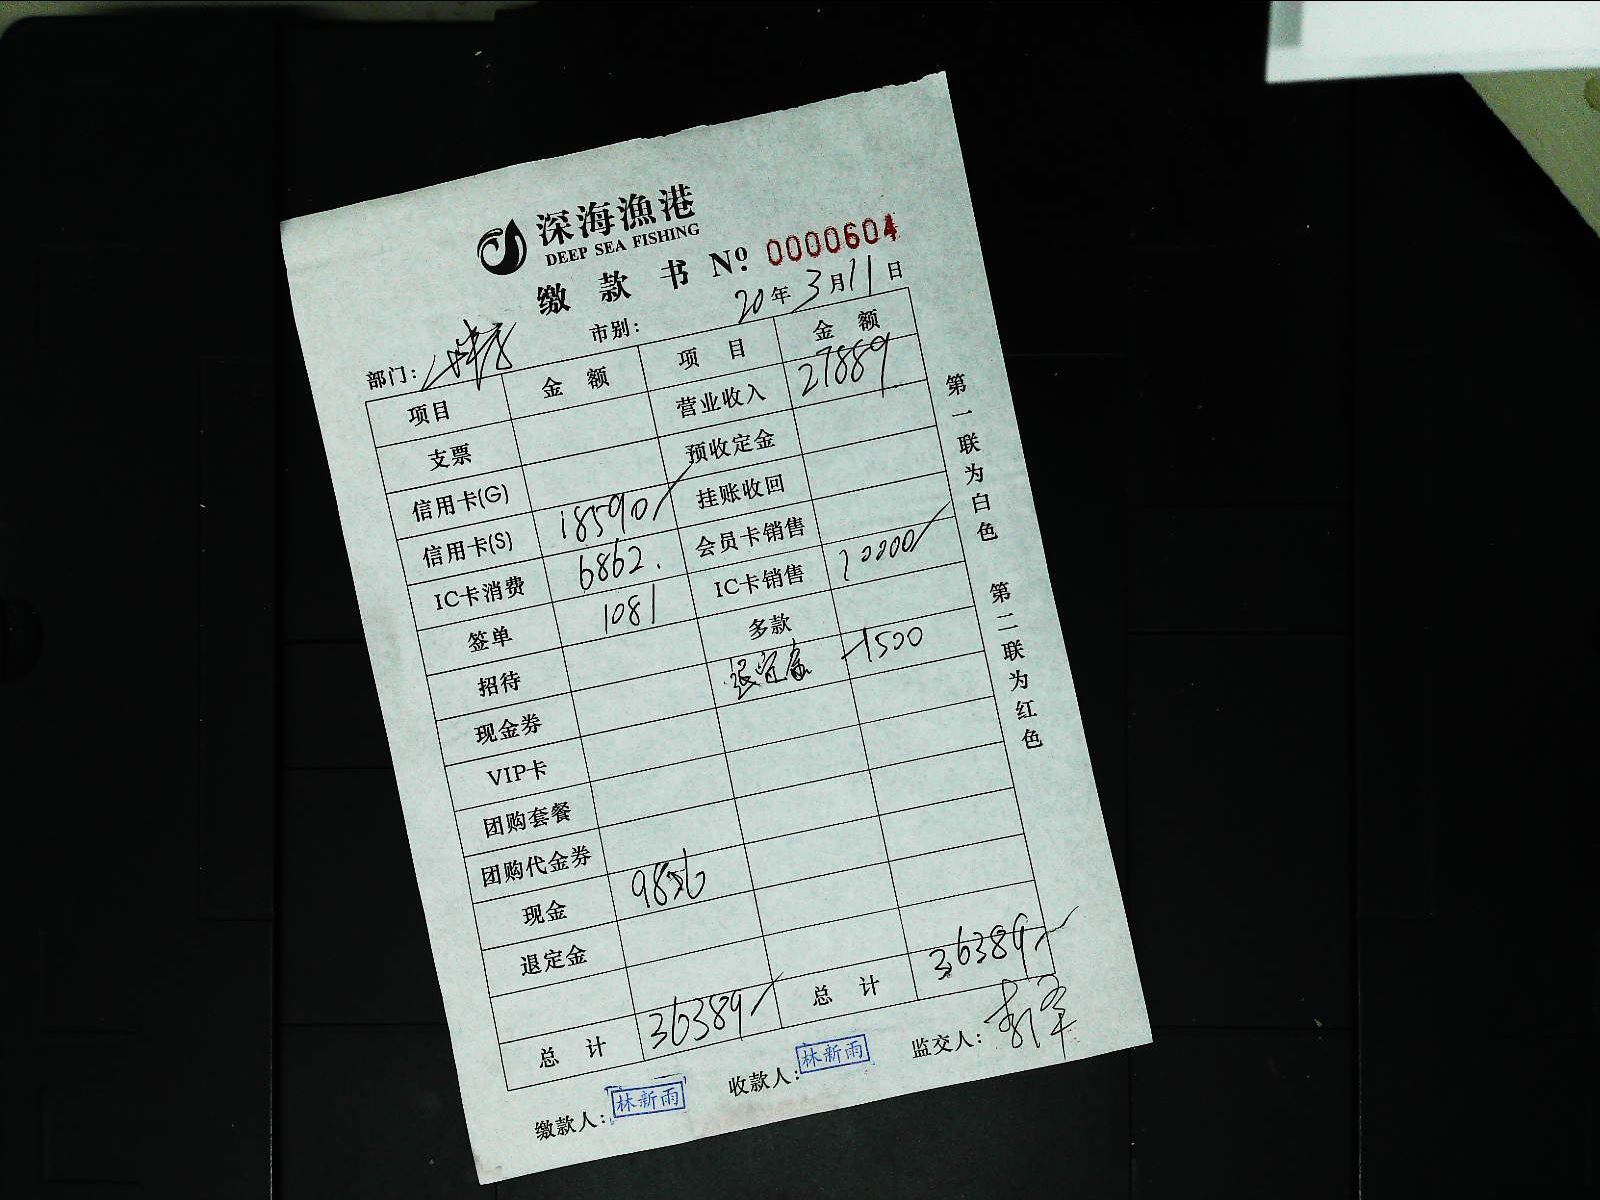 深海漁港
DEEP SEA FISHING
缴款书 № 0000604
部门： 市别： 20年3月11日
项目 金额 项目 金额
支票 营业收入 27889
信用卡(G) 预收定金
信用卡(S) 18590 挂账收回
IC卡消费 6862. 会员卡销售
签单 1081 IC卡销售 10000
招待 多款
现金券 退定金 -1500
VIP卡
团购套餐
团购代金券
现金 9856
退定金
总计 36389 总计 36389
缴款人：林新雨 收款人：林新雨 监交人：
第一联为白色 第二联为红色